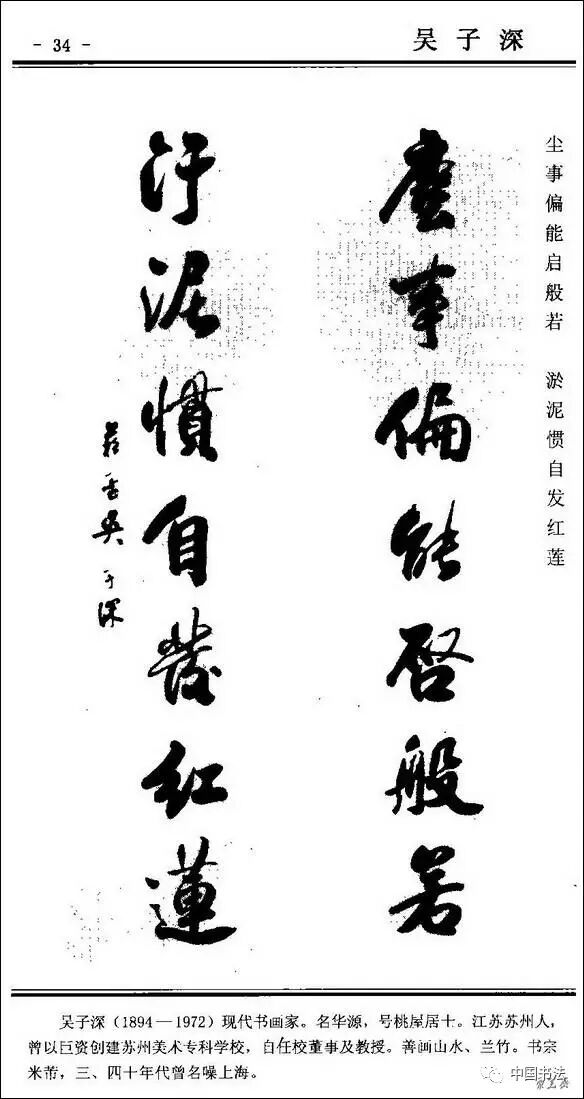 - 34 -
吴子深
尘事偏能启般若 淤泥惯自发红莲
塵事偏能啓般若
汙泥慣自發紅蓮
吳子深
吴子深（1894—1972）现代书画家。名华源，号桃屋居士。江苏苏州人，
曾以巨资创建苏州美术专科学校，自任校董事及教授。善画山水、兰竹。书宗
米芾，三、四十年代曾名噪上海。
中国书法